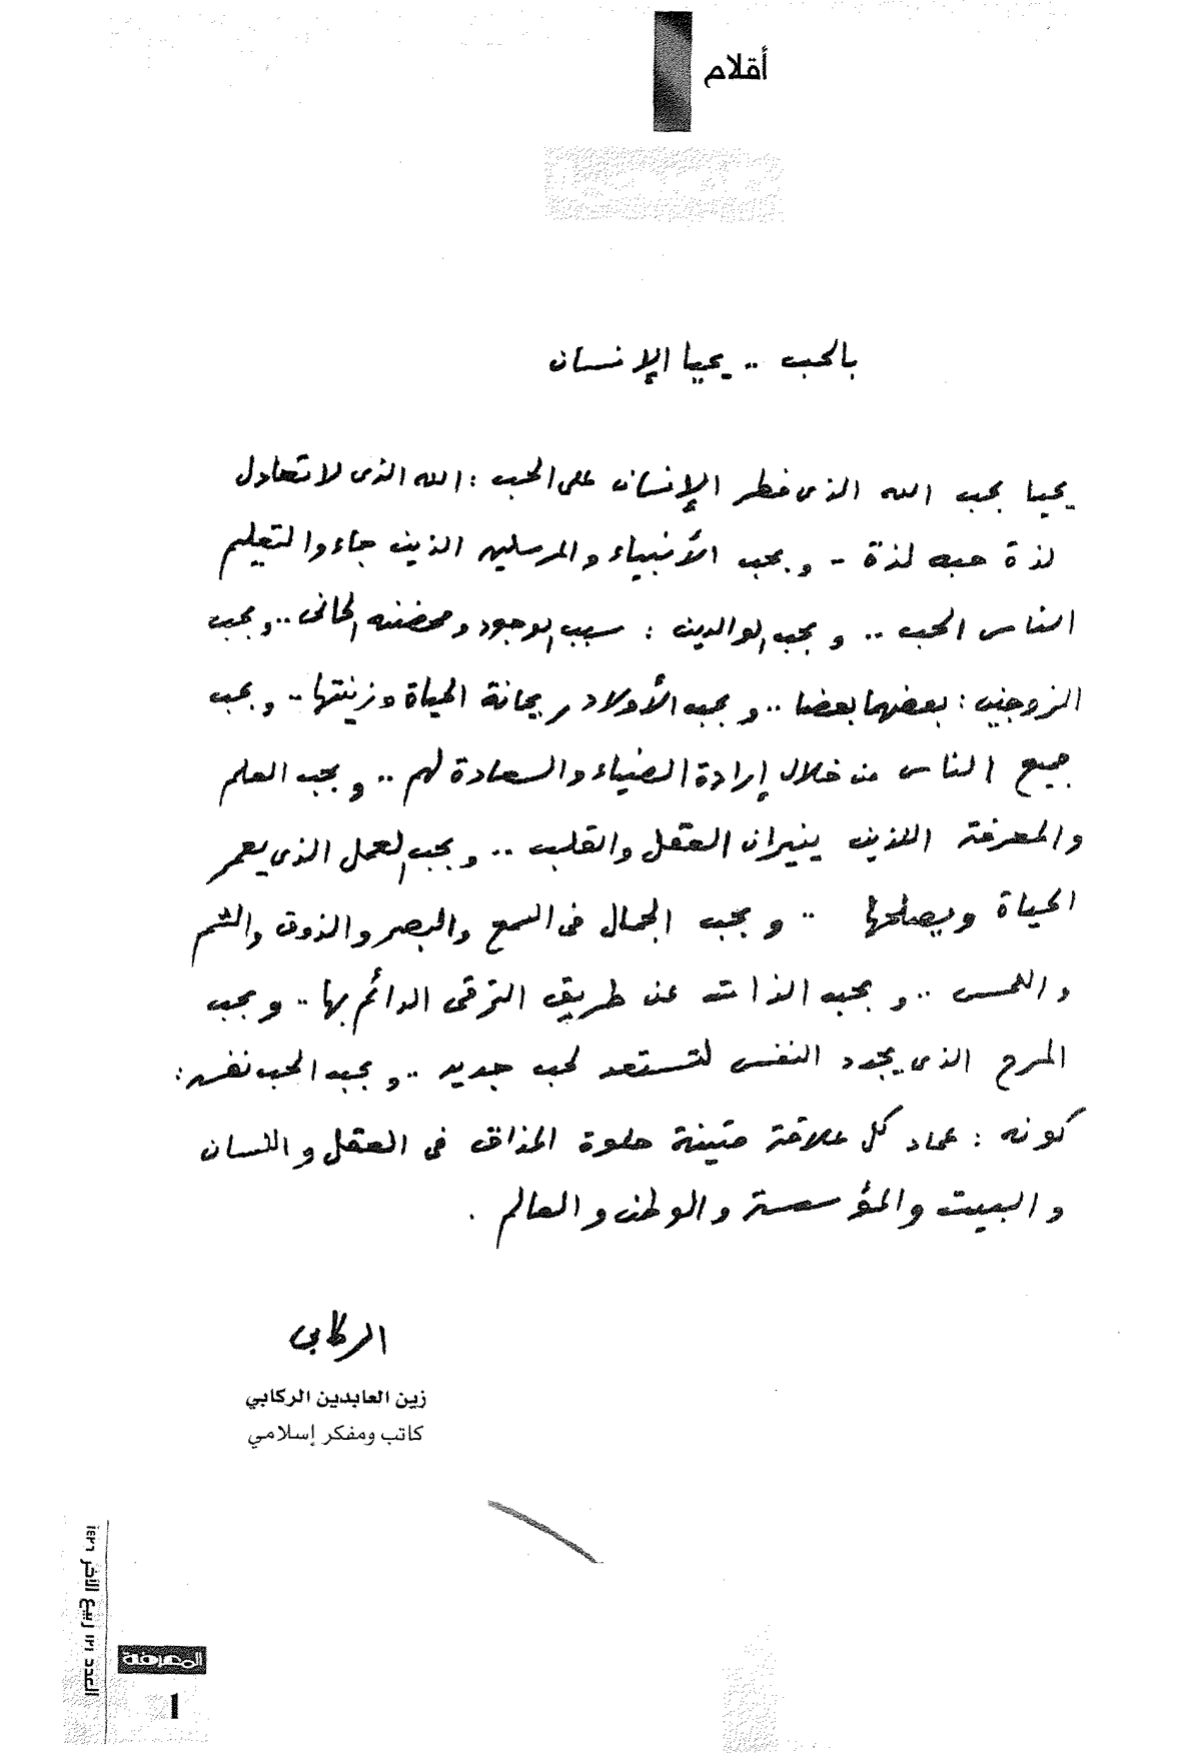 أقلام
بالحب .. يحيا الإنسان
يحيا بحب الله الذى فطر الإنسان على الحب : الله الذى لا تعادل
لذة حبه لذة - و بحب الأنبياء والمرسلين الذين جاءوا لتعليم
الناس الحب .. و بحب الوالدين : سبب الوجود ومحضنه الحانى .. و بحب
الزوجين : بعضهما بعضا .. و بحب الأولاد ريحانة الحياة وزينتها .. و بحب
جميع الناس من خلال إرادة الضياء والسعادة لهم .. و بحب العلم
والمعرفة اللذين ينيران العقل والقلب .. و بحب العمل الذى يعمر
الحياة ويصلحها .. و بحب الجمال فى السمع والبصر والذوق والشم
واللمس .. و بحب الذات عن طريق الترقى الدائم بها .. و بحب
المرح الذى يجدد النفس لتستعد لحب جديد .. و بحب الحب نفسه :
كونه : عماد كل علاقة متينة حلوة المذاق فى العقل واللسان
والبيت والمؤسسة والوطن والعالم .
الركابى
زين العابدين الركابي
كاتب ومفكر إسلامي
العدد ١٢١ ربيع الآخر ١٤٢٦
المعرفة
1